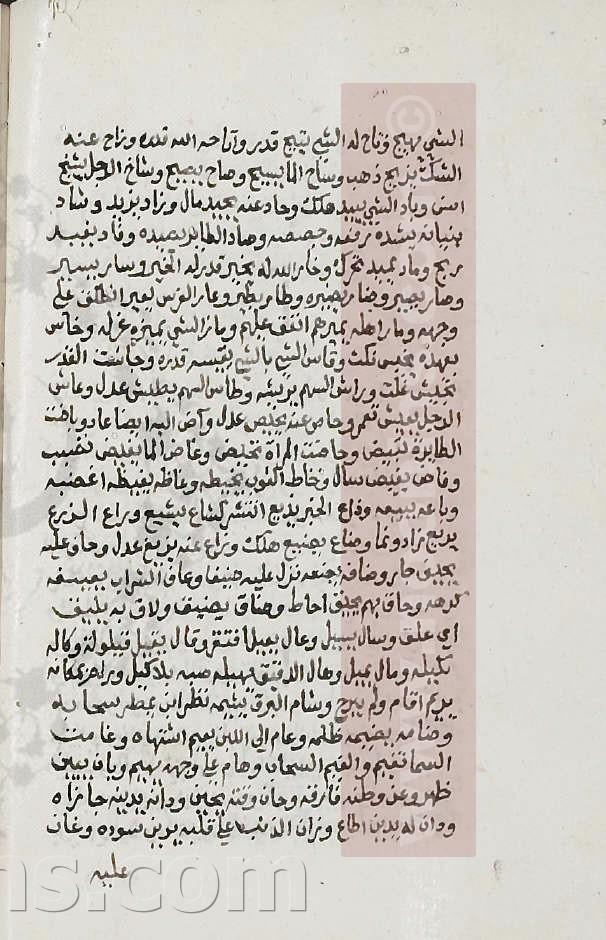 الشي يهيج وتاح له الشي يتيح قدر وآتاحه الله قدره وزاح عنه
الشك يزيح ذهب وساح الما يسيح وصاح يصيح وشاخ الرجل يشيخ
اسن وباد الشي يبيد هلك وحاد عنه يحيد مال وزاد يزيد وشاد
بنيانه يشيده رفعه وجصصه وصاد الطائر يصيده وفاد يفيد
ربح وماد يميد تحرك وخار الله له يخير قدر له الخير وسار يسير
وصار يصير وضار يضيره وطار يطير وعار الفرس يعير انطلق على
وجهه ومار اهله يميرهم انفق عليهم وماز الشي يميزه عزله وخاس
بعهده يخيس نكث وقاس الشي بالشي يقيسه قدره وجاشت القدر
تجيش غلت وراش السهم يريشه وطاش السهم يطيش عدل وعاش
الرجل يعيش نعم وحاص عنه يحيص عدل وآض اليه ايضا عاد وباضت
الطايرة تبيض وحاضت المرأة تحيض وغاض الما يغيض نضب
وفاض يفيض سال وخاط الثوب يخيطه وغاظه يغيظه اغضبه
وباعه يبيعه وذاع الخبر يذيع انتشر كشاع يشيع وراع الزرع
يريع زاد ونما وضاع يضيع هلك وزاغ عنه يزيغ عدل وحاف عليه
يحيف جار وضافه يضيفه نزل عليه ضيفا وعاف الشراب يعيفه
كرهه وحاق بهم يحيق احاط وضاق يضيق ولاق به يليق
اي علق وسال يسيل وعال يعيل افتقر وقال يقيل قيلولة وكاله
يكيله ومال يميل وهال الدقيق يهيله صبه بلا كيل ورام مكانه
يريم اقام ولم يبرح وشام البرق يشيمه نظر اين يمطر سحابه
وضامه يضيمه ظلمه وعام الى اللبن يعيم اشتهاه وغامت
السما تغيم والغيم السحاب وهام على وجهه يهيم وبان يبين
ظهر وعن وطنه فارقه وحان وقته يحين ودانه يدينه جازاه
ودان له يدين اطاع وران الذنب على قلبه يرين سوده وغان
عليه
ns.com